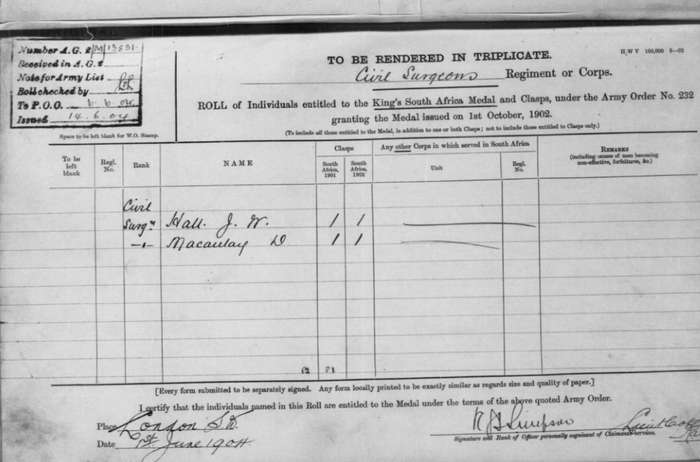 Number A.G. 2
Received in A.G. 2
Note for Army List
Roll checked by
To P.O.O. 6.6.04
Issued 14.6.04
Space to be left blank for W.O. Stamp.
H W V 100,000 5—03
TO BE RENDERED IN TRIPLICATE.
Civil Surgeons Regiment or Corps.
ROLL of Individuals entitled to the King's South Africa Medal and Clasps, under the Army Order No. 232
granting the Medal issued on 1st October, 1902.
(To include all those entitled to the Medal, in addition to one or both Clasps; not to include those entitled to Clasps only.)
To be left blank
Regl. No.
Rank
NAME
Clasps
South Africa, 1901
South Africa, 1902
Any other Corps in which served in South Africa
Unit
Regl. No.
REMARKS
(including causes of men becoming non-effective, forfeitures, &c.)
Civil
Surgn Hall. J. W. 1 1
—"— Macaulay D 1 1
[Every form submitted to be separately signed. Any form locally printed to be exactly similar as regards size and quality of paper.]
I certify that the individuals named in this Roll are entitled to the Medal under the terms of the above quoted Army Order.
Place London S.W.
Date 1st June 1904
Simpson
Signature and Rank of Officer personally cognisant of Claimants' services.